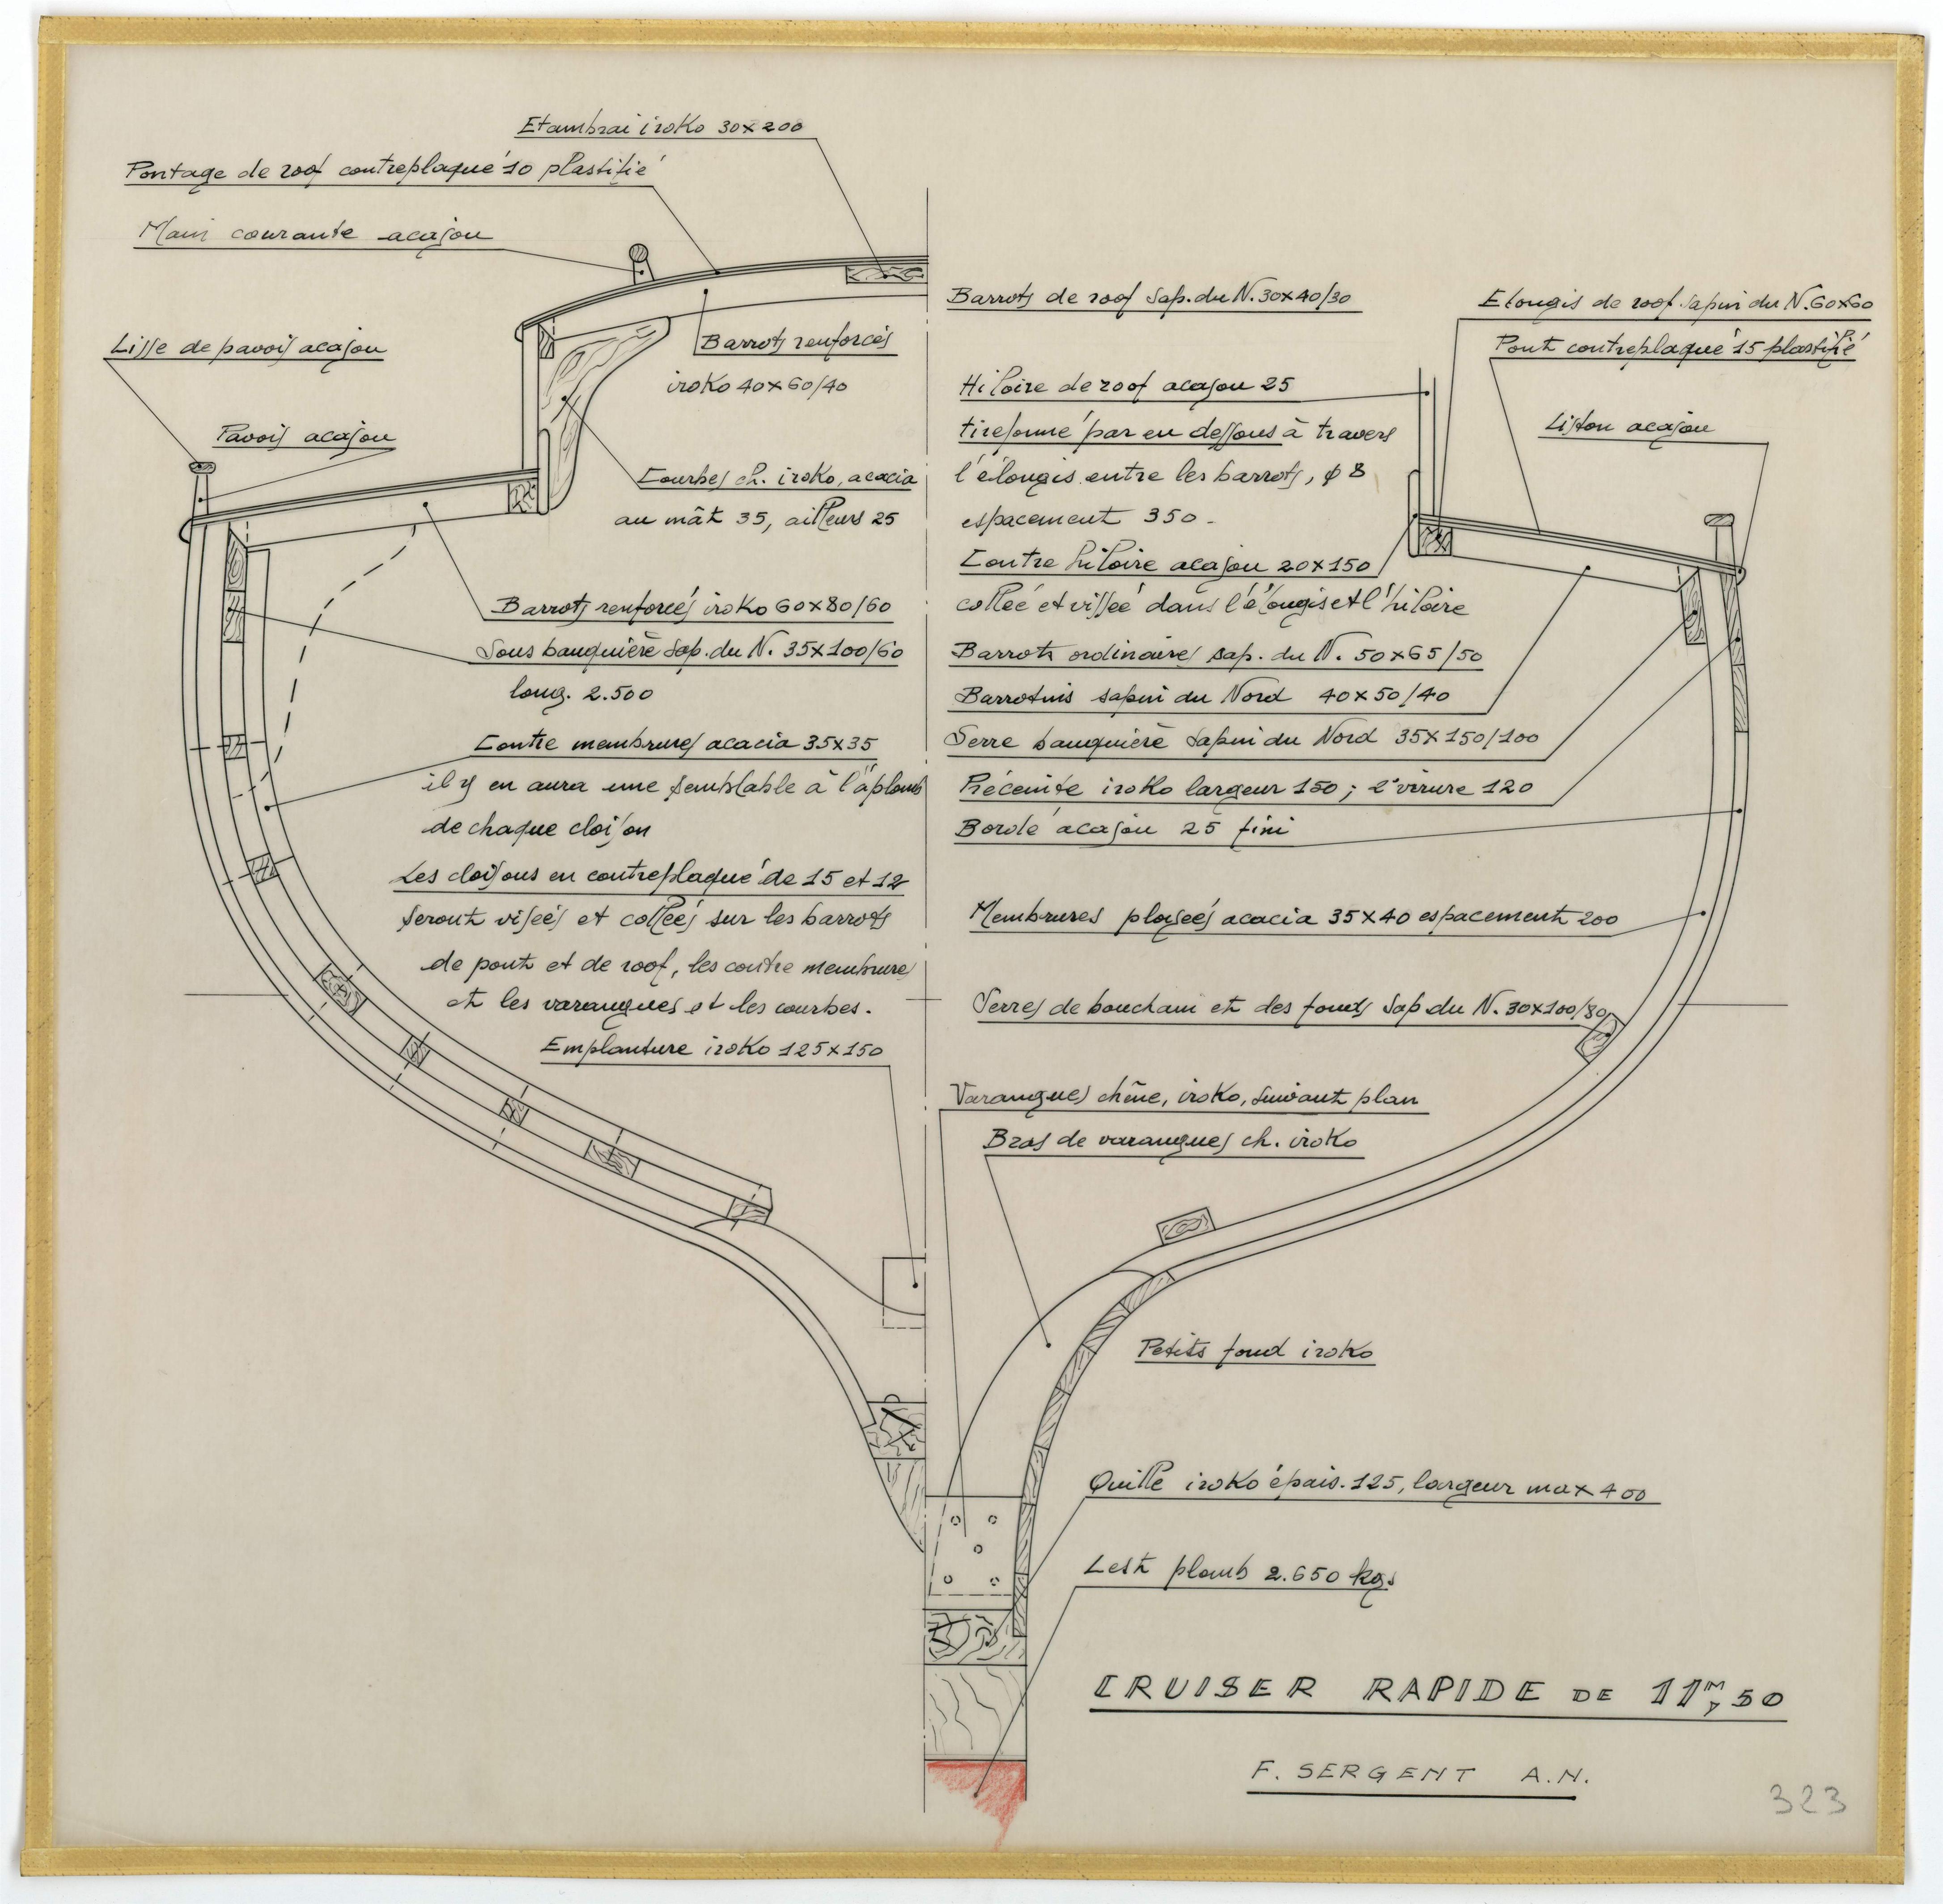 Etambrai iroko 30x200
Pontage de roof contreplaqué 10 plastifié
Main courante acajou
Lisse de pavois acajou
Pavois acajou
Barrots renforcés
iroko 40x60/40
Courbes ch. iroko, acacia
au mât 35, ailleurs 25
Barrots renforcés iroko 60x80/60
Sous bauquière Sap. du N. 35x100/60
long. 2.500
Contre membrures acacia 35x35
il y en aura une semblable à l'aplomb
de chaque cloison
Les cloisons en contreplaqué de 15 et 12
seront visées et collées sur les barrots
de pont et de roof, les contre membrure
et les varangues et les courbes.
Emplanture iroko 125x150
Barrots de roof Sap. du N. 30x40/30
Elongis de roof sapin du N. 60x60
Pont contreplaqué 15 plastifié
Hiloire de roof acajou 25
tirefonné par en dessous à travers
l'élongis entre les barrots, φ 8
espacement 350 -
Liston acajou
Contre hiloire acajou 20x150
collée et vissée dans l'élongis et l'hiloire
Barrots ordinaires sap. du N. 50x65/50
Barrotins sapin du Nord 40x50/40
Serre bauquière Sapin du Nord 35x150/100
Préceinte iroko largeur 150 ; 2e virure 120
Bordé acajou 25 fini
Membrures ployées acacia 35x40 espacement 200
Serres de bouchain et des fonds Sap. du N. 30x100/80
Varangues chêne, iroko, suivant plan
Bras de varangues ch. iroko
Petits fond iroko
Quille iroko épais. 125, largeur max 400
Lest plomb 2.650 kgs
CRUISER RAPIDE DE 11m,50
F. SERGENT A.N.
323